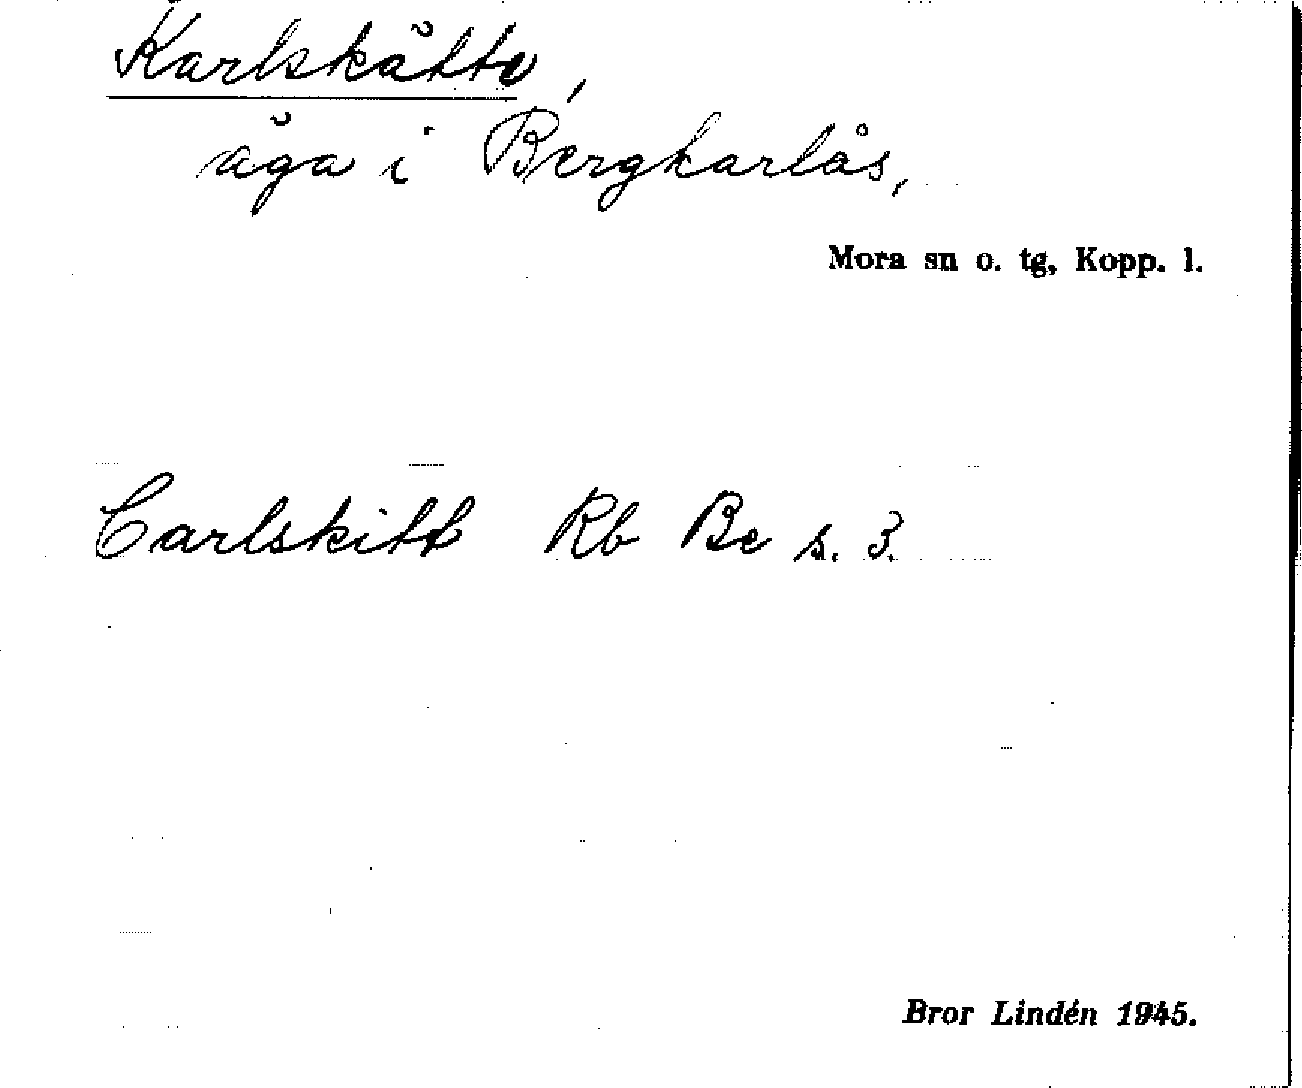 Karlskätte,
äga i Bergkarlås,
Mora sn o. tg, Kopp. l.
Carlskitt Rb Be s. 3.
Bror Lindén 1945.